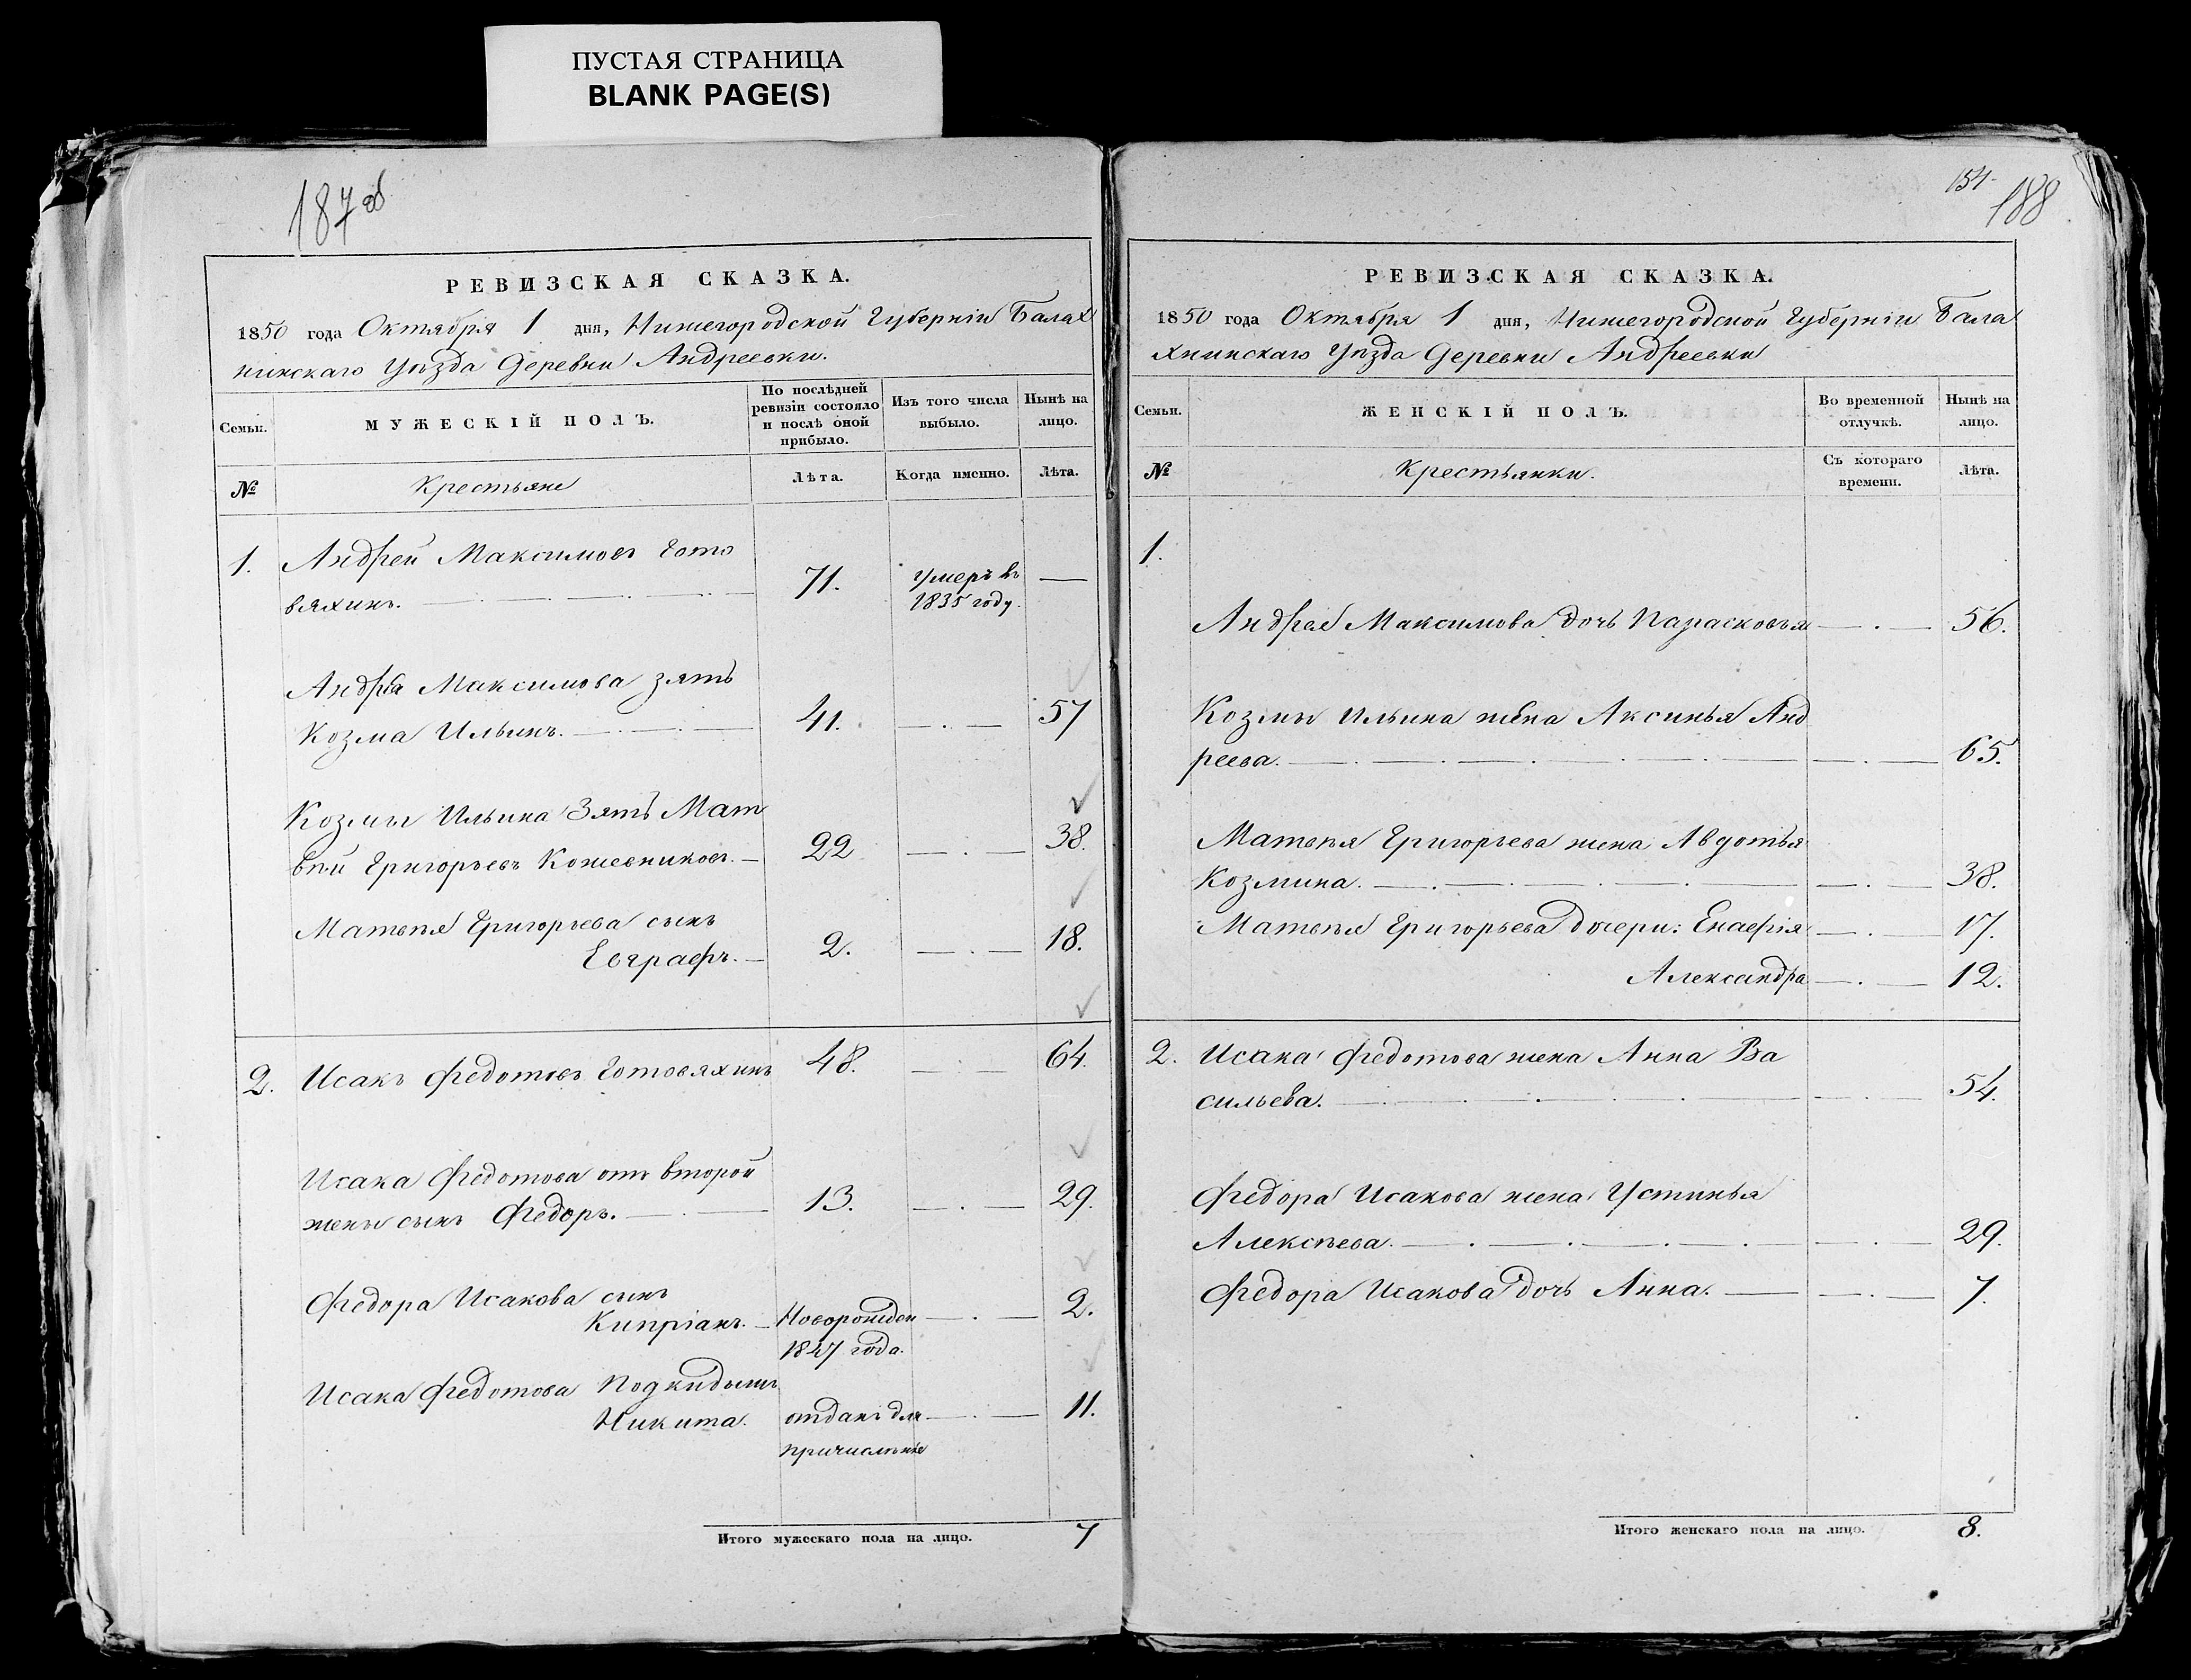 ПУСТАЯ СТРАНИЦА
BLANK PAGE(S)
187 об
РЕВИЗСКАЯ СКАЗКА.
1850 года Октября 1 дня, Нижегородской Губерніи Балах
нинскаго Уѣзда Деревни Андреевки.
Семьи. МУЖЕСКІЙ ПОЛЪ. По послѣдней ревизіи состояло и послѣ оной прибыло. Изъ того числа выбыло. Нынѣ на лицо.
№ Крестьяне Лѣта. Когда именно. Лѣта.
1. Андрей Максимовъ Гото
вяхинъ. 71. Умеръ въ 1835 году. —
Андрея Максимова зять
Козма Ильинъ. 41. 57
Козмы Ильина Зять Мат
вѣй Григорьевъ Кожевниковъ. 22 38.
Матвѣя Григорьева сынъ
Евграфъ. 2. 18.
2. Исакъ Федотовъ Готовяхинъ 48. 64.
Исака Федотова отъ второй
жены сынъ Федоръ. 13. 29.
Федора Исакова сынъ
Кипріанъ. Новорожден 2.
1847 года.
Исака Федотова Подкидышъ
Никита. отданъ для 11.
причисленія
Итого мужескаго пола на лицо. 7
154
188
РЕВИЗСКАЯ СКАЗКА.
1850 года Октября 1 дня, Нижегородской Губерніи Бала
хнинскаго Уѣзда Деревни Андреевки
Семьи. ЖЕНСКІЙ ПОЛЪ. Во временной отлучкѣ. Нынѣ на лицо.
№ Крестьянки. Съ котораго времени. Лѣта.
1.
Андрея Максимова дочь Парасковья 56.
Козмы Ильина жена Аксинья Анд
реева. 65.
Матвѣя Григорьева жена Авдотья
Козмина. 38.
Матвѣя Григорьева дочери: Енафія 17.
Александра 12.
2. Исака Федотова жена Анна Ва
сильева. 54.
Федора Исакова жена Устинья
Алексѣева. 29.
Федора Исакова дочь Анна. 7.
Итого женскаго пола на лицо. 8.